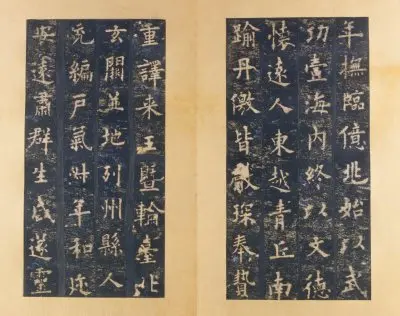 年撫臨億兆始以武
功壹海内終以文德
懷遠人東越青丘南
踰丹徼皆獻琛奉贄
重譯来王暨輪臺北
玄闕並地列州縣人
充編戶氣淑年和迩
安遠肅群生咸遂靈